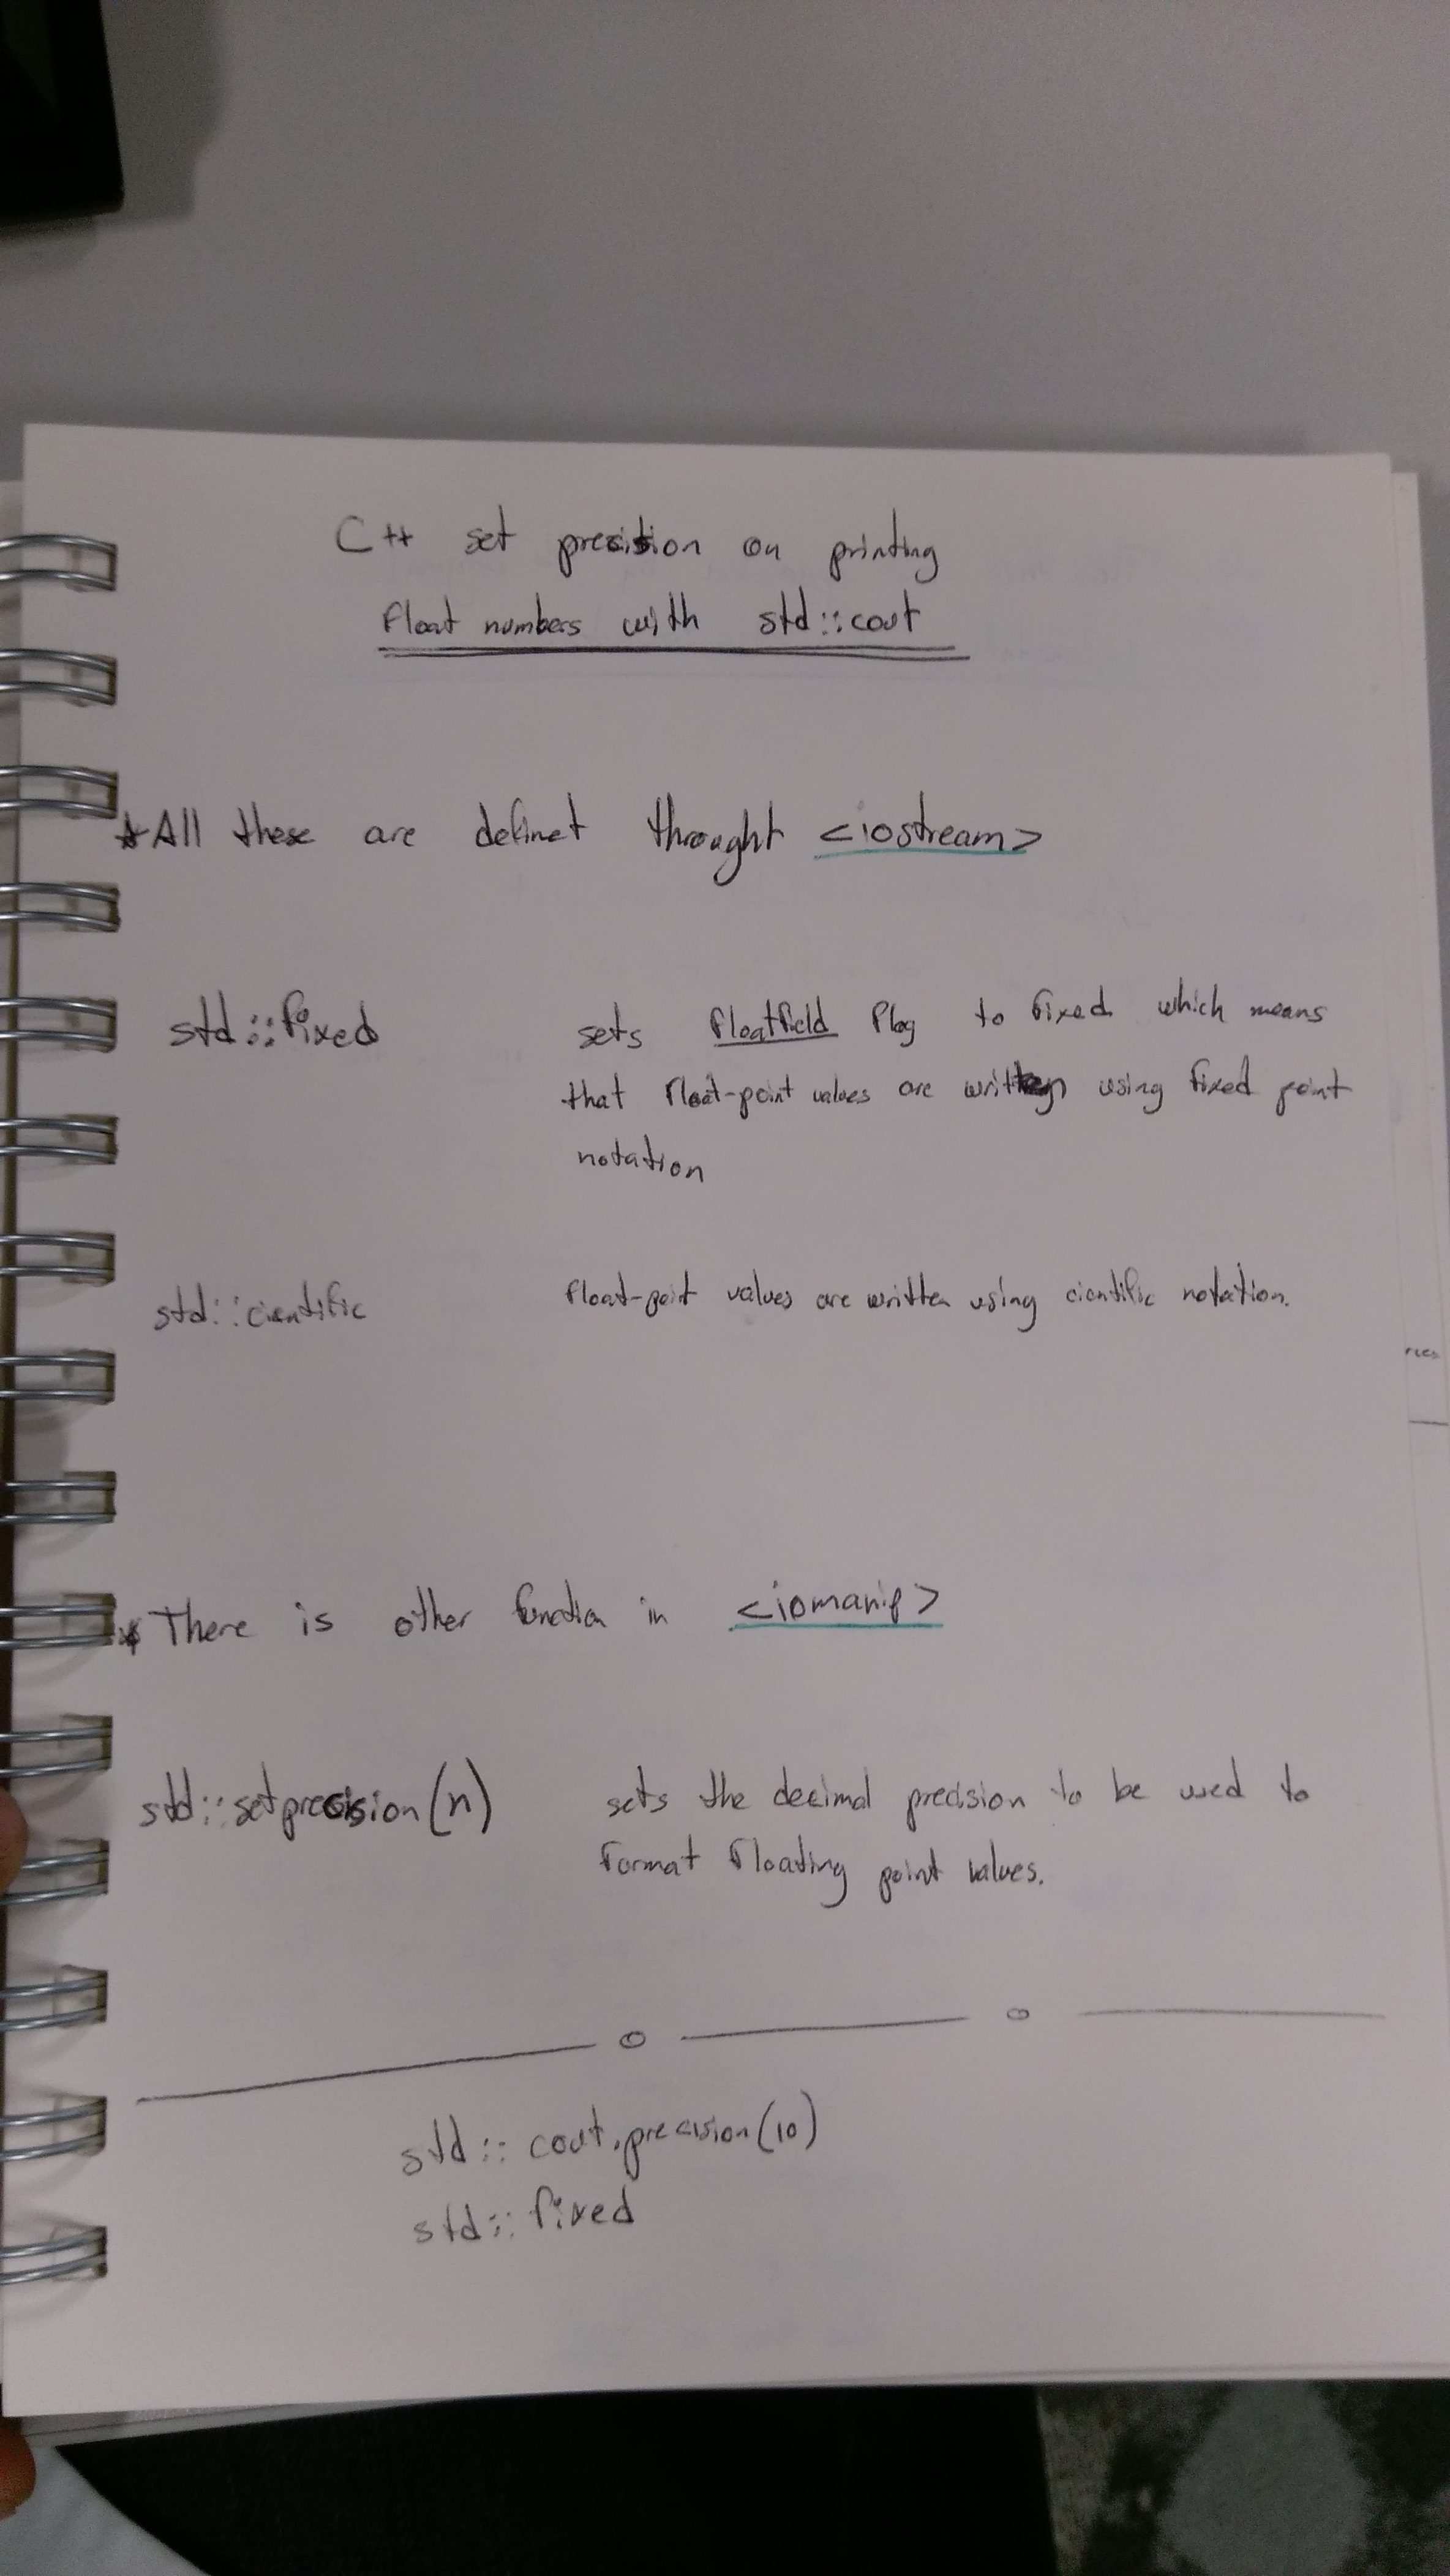 C++ set precision on printing
float numbers with std::cout
*All these are definet throught <iostream>
std::fixed sets floatfield flag to fixed which means
that float-point values are written using fixed point
notation
std::cientific float-point values are written using cientific notation.
* There is other function in <iomanip>
std::setprecision(n) sets the decimal precision to be used to
format floating point values.
std::cout.precision(10)
std::fixed